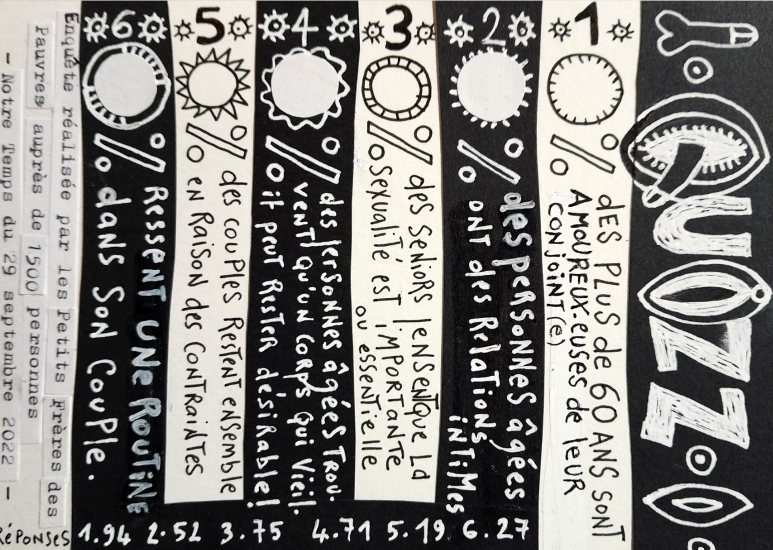 QUIZZ
1
% dES PLUS de 60 ANS SONT
AMOUREUX.EUSES de leur
CONJOINT(E)
2
% des personnes âgées
ont des Relations
intimes
3
% des SENIORS PENSENT que la
Sexualité est IMPORTANTE
ou essentielle
4
% des personnes âgées trou-
vent qu'un corps qui vieil-
lit peut rester désirable!
5
% des couples Restent ensemble
en Raison des contraintes
6
% Ressent UNe RoUTiNe
dans son couple.
Enquête réalisée par les Petits Frères des
Pauvres auprès de 1500 personnes
— Notre Temps du 29 septembre 2022 —
RÉPONSES 1.94 2.52 3.75 4.71 5.19 6.27